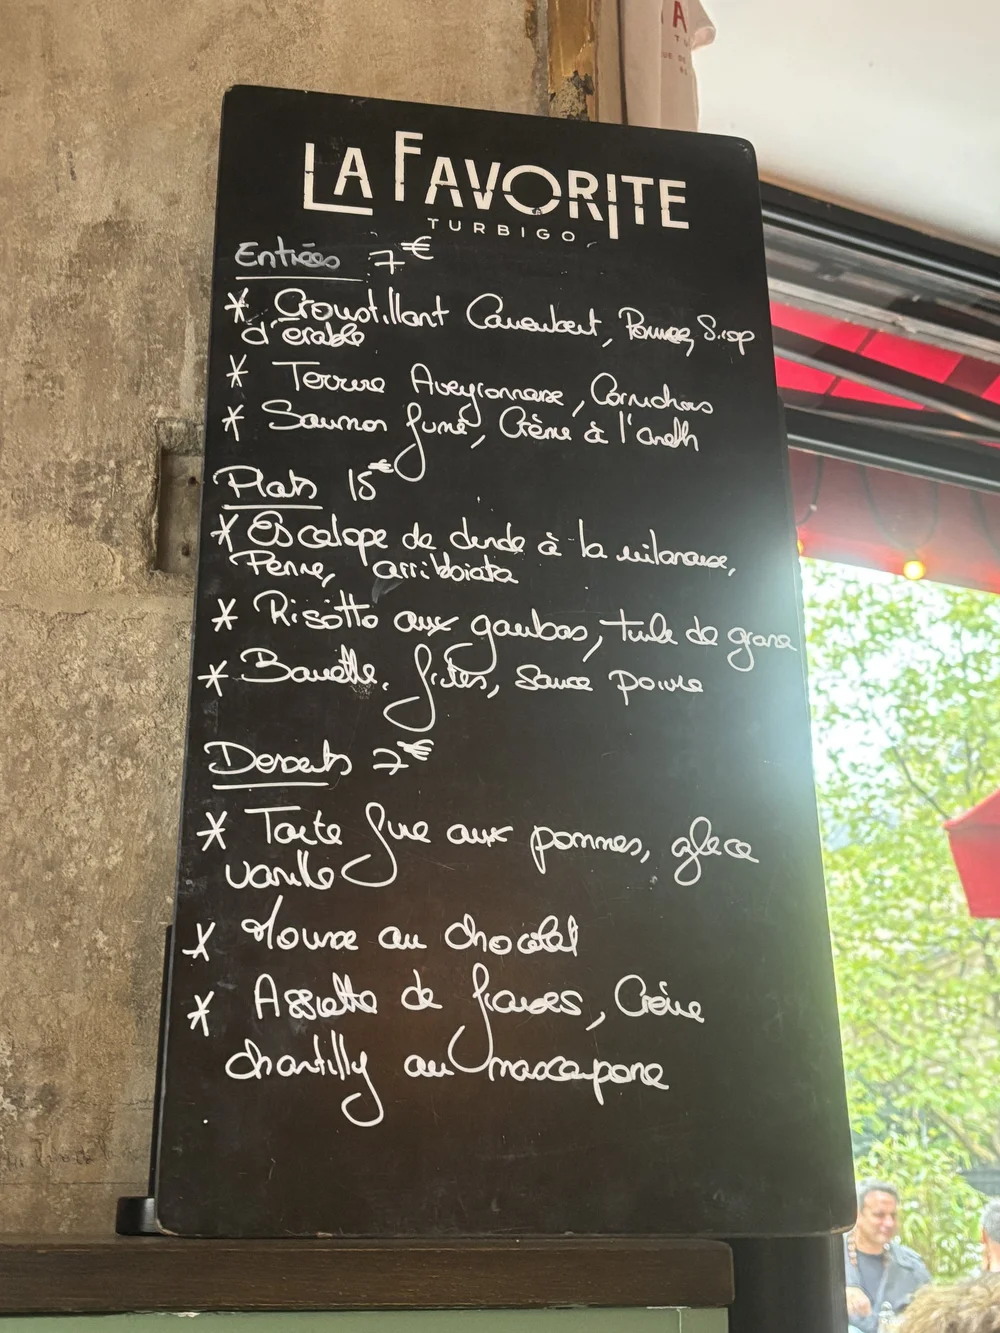 LA FAVORITE
TURBIGO
Entrées 7€
* Croustillant Camembert, Pommes, Sirop
d'érable
* Terrine Aveyronnaise, Cornichons
* Saumon fumé, Crème à l'aneth
Plats 15€
* Escalope de dinde à la milanaise,
Penne, arribbiata
* Risotto aux gambas, tuile de grana
* Bavette, frites, sauce poivre
Desserts 7€
* Tarte fine aux pommes, glace
vanille
* Mousse au chocolat
* Assiette de fraises, Crème
chantilly au mascarpone